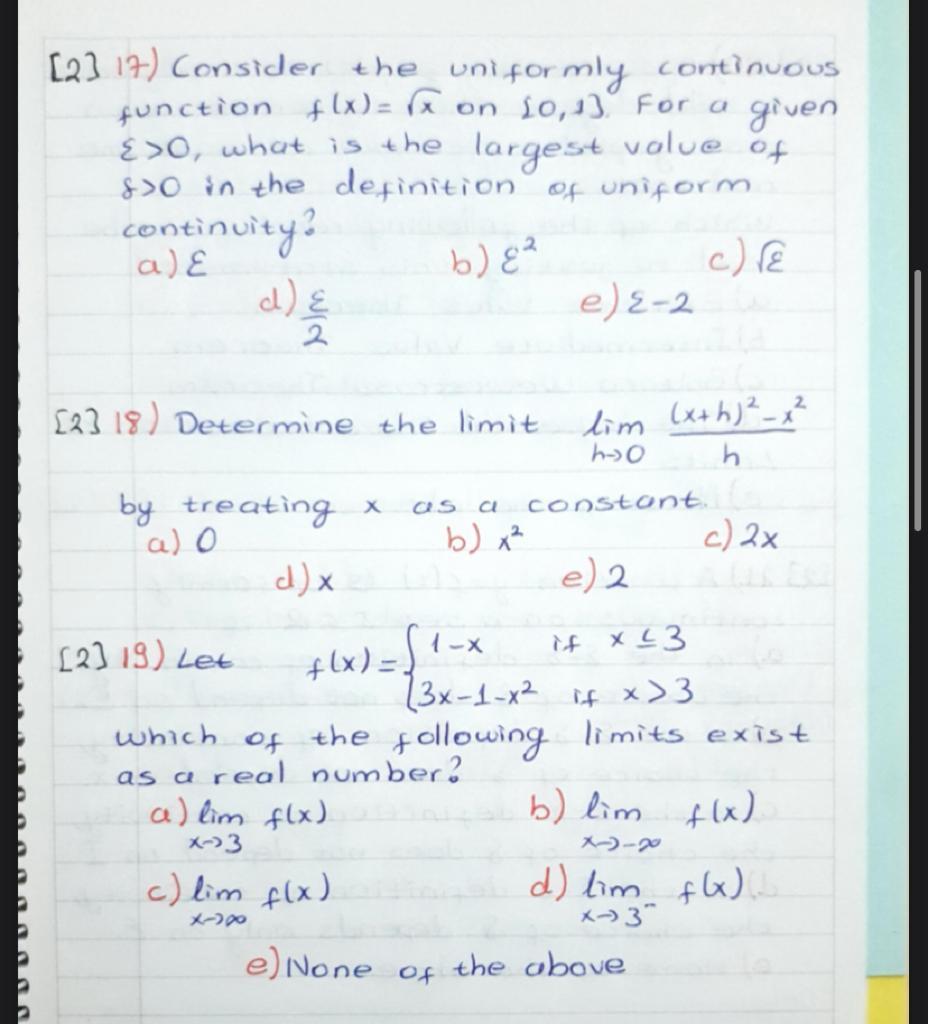 [2] 17) Consider the uniformly continuous
function f(x)=√x on [0,1]. For a given
ε>0, what is the largest value of
δ>0 in the definition of uniform
continuity?
a) ε b) ε² c) √ε
d) ε/2 e) ε-2
[2] 18) Determine the limit lim h→0 ((x+h)²-x²)/h
by treating x as a constant.
a) 0 b) x² c) 2x
d) x e) 2
[2] 19) Let f(x)={1-x if x≤3
3x-1-x² if x>3
which of the following limits exist
as a real number?
a) lim x→3 f(x) b) lim x→-∞ f(x)
c) lim x→∞ f(x) d) lim x→3⁻ f(x)
e) None of the above